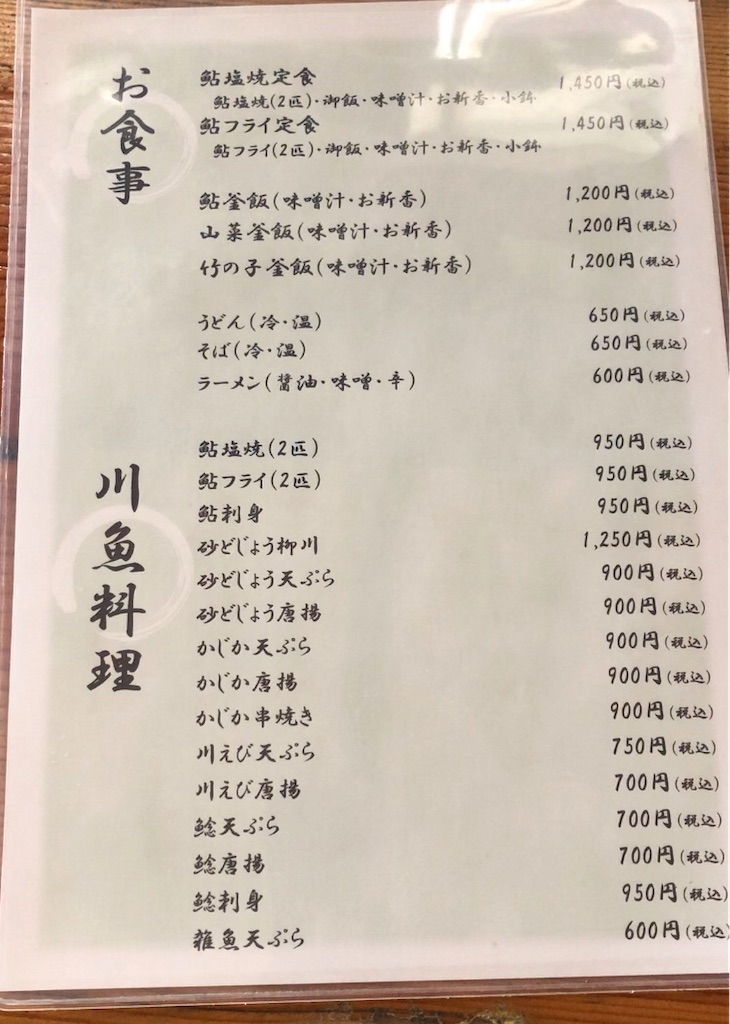 お食事
鮎塩焼定食 1,450円(税込)
鮎塩焼(2匹)・御飯・味噌汁・お新香・小鉢
鮎フライ定食 1,450円(税込)
鮎フライ(2匹)・御飯・味噌汁・お新香・小鉢
鮎釜飯(味噌汁・お新香) 1,200円(税込)
山菜釜飯(味噌汁・お新香) 1,200円(税込)
竹の子釜飯(味噌汁・お新香) 1,200円(税込)
うどん(冷・温) 650円(税込)
そば(冷・温) 650円(税込)
ラーメン(醤油・味噌・辛) 600円(税込)
川魚料理
鮎塩焼(2匹) 950円(税込)
鮎フライ(2匹) 950円(税込)
鮎刺身 950円(税込)
砂どじょう柳川 1,250円(税込)
砂どじょう天ぷら 900円(税込)
砂どじょう唐揚 900円(税込)
かじか天ぷら 900円(税込)
かじか唐揚 900円(税込)
かじか串焼き 900円(税込)
川えび天ぷら 750円(税込)
川えび唐揚 700円(税込)
鯰天ぷら 700円(税込)
鯰唐揚 700円(税込)
鯰刺身 950円(税込)
雑魚天ぷら 600円(税込)